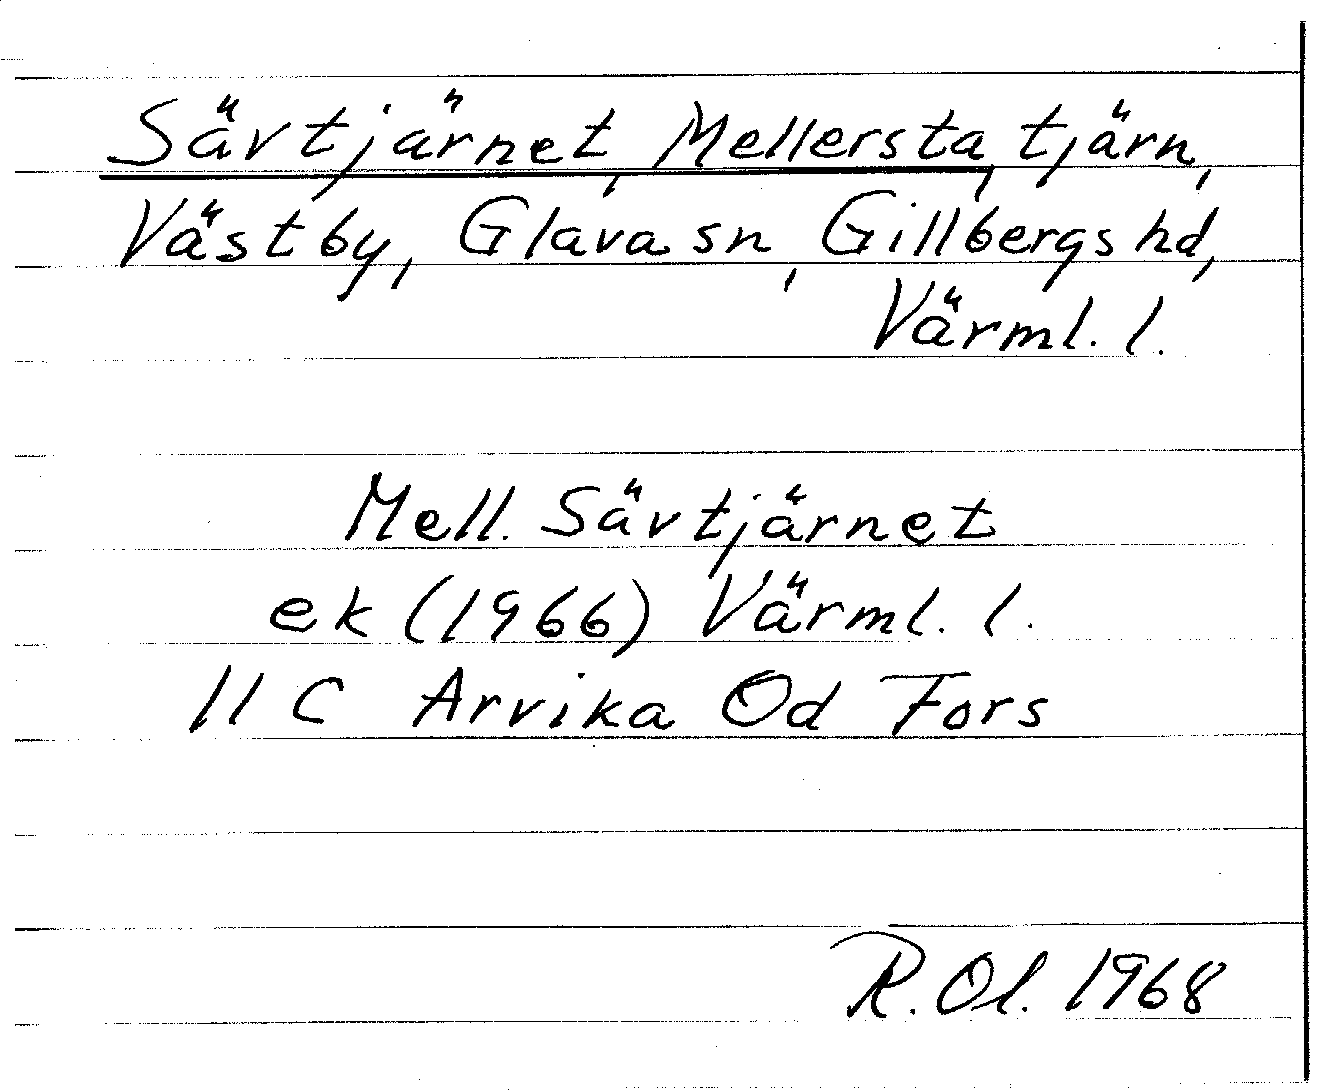 Sävtjärnet, Mellersta, tjärn,
Västby, Glava sn, Gillbergs hd,
Värml. l.
Mell. Sävtjärnet
ek (1966) Värml. l.
11 C Arvika Od Fors
R. Ol. 1968